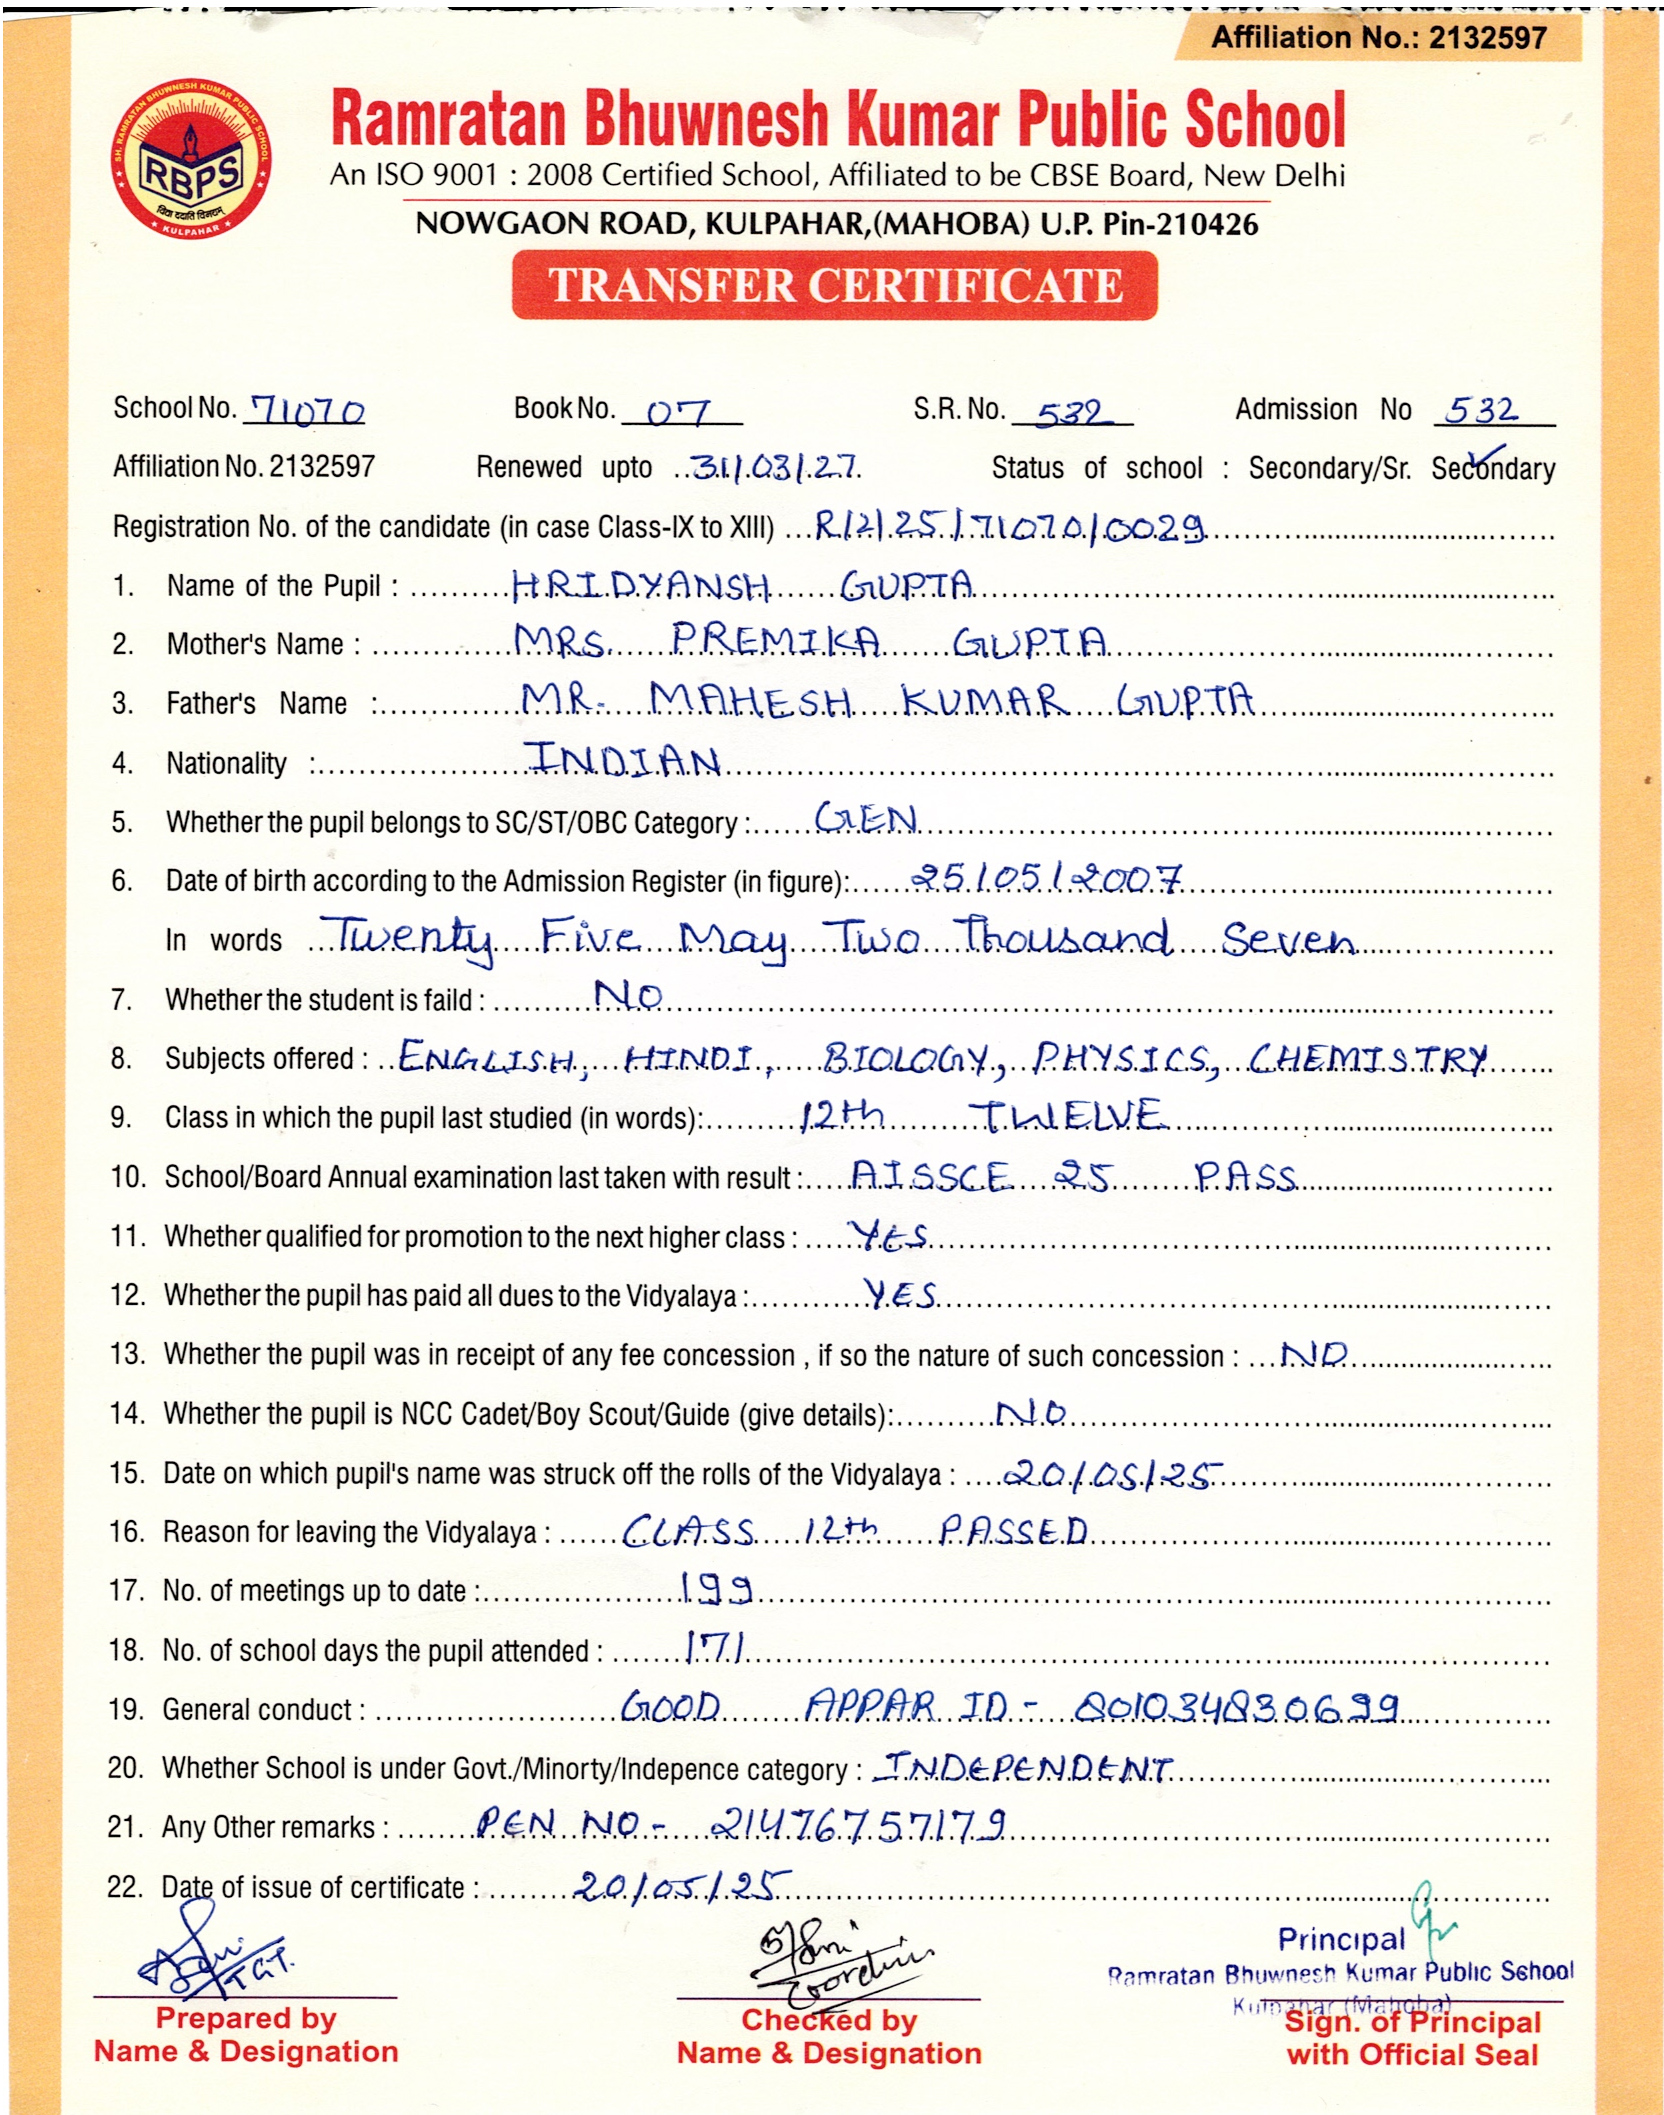 Affiliation No.: 2132597
SH. RAMRATAN BHUWNESH KUMAR PUBLIC SCHOOL
RBPS
विद्या ददाति विनयम्
KULPAHAR
Ramratan Bhuwnesh Kumar Public School
An ISO 9001 : 2008 Certified School, Affiliated to be CBSE Board, New Delhi
NOWGAON ROAD, KULPAHAR,(MAHOBA) U.P. Pin-210426
TRANSFER CERTIFICATE
School No. 71070 Book No. 07 S.R. No. 532 Admission No 532
Affiliation No. 2132597 Renewed upto 31/03/27. Status of school : Secondary/Sr. Secondary
Registration No. of the candidate (in case Class-IX to XIII) R/2/25/71070/0029
1. Name of the Pupil : HRIDYANSH GUPTA
2. Mother's Name : MRS. PREMIKA GUPTA
3. Father's Name : MR. MAHESH KUMAR GUPTA
4. Nationality : INDIAN
5. Whether the pupil belongs to SC/ST/OBC Category : GEN
6. Date of birth according to the Admission Register (in figure): 25/05/2007
In words Twenty Five May Two Thousand Seven
7. Whether the student is faild : NO
8. Subjects offered : ENGLISH, HINDI, BIOLOGY, PHYSICS, CHEMISTRY
9. Class in which the pupil last studied (in words): 12th TWELVE
10. School/Board Annual examination last taken with result : AISSCE 25 PASS
11. Whether qualified for promotion to the next higher class : YES
12. Whether the pupil has paid all dues to the Vidyalaya : YES
13. Whether the pupil was in receipt of any fee concession , if so the nature of such concession : NO
14. Whether the pupil is NCC Cadet/Boy Scout/Guide (give details): NO
15. Date on which pupil's name was struck off the rolls of the Vidyalaya : 20/05/25
16. Reason for leaving the Vidyalaya : CLASS 12th PASSED
17. No. of meetings up to date : 199
18. No. of school days the pupil attended : 171
19. General conduct : GOOD APPAR ID - 801034830699
20. Whether School is under Govt./Minorty/Indepence category : INDEPENDENT
21. Any Other remarks : PEN NO - 21476757179
22. Date of issue of certificate : 20/05/25
TGT.
Principal
Ramratan Bhuwnesh Kumar Public School
Kulpahar (Mahoba)
Prepared by Checked by Sign. of Principal
Name & Designation Name & Designation with Official Seal